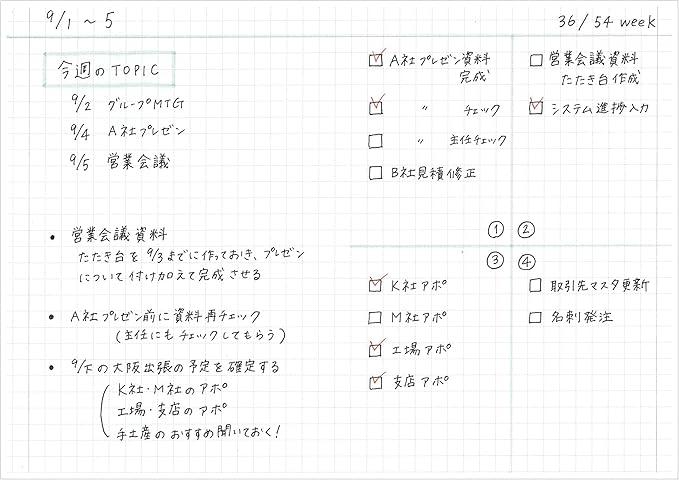 9/1 ~ 5
36/54 week
今週のTOPIC
9/2 グループMTG
9/4 A社プレゼン
9/5 営業会議
• 営業会議資料
たたき台を9/3までに作っておき、プレゼン
について付け加えて完成させる
• A社プレゼン前に資料再チェック
(主任にもチェックしてもらう)
• 9/下の大阪出張の予定を確定する
K社・M社のアポ
工場・支店のアポ
手土産のおすすめ聞いておく!
A社プレゼン資料
完成
〃 チェック
〃 主任チェック
B社見積修正
①
営業会議資料
たたき台作成
システム進捗入力
②
③
K社アポ
M社アポ
工場アポ
支店アポ
④
取引先マスタ更新
名刺発注